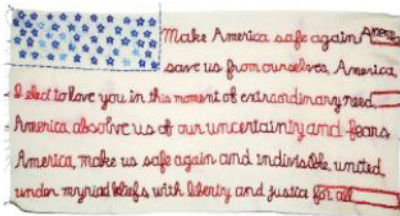 Make America safe again Amen
save us from ourselves, America,
I elect to love you in this moment of extraordinary need,
America absolve us of our uncertainty and fears
America, make us safe again and indivisible, united
under myriad beliefs with liberty and justice for all